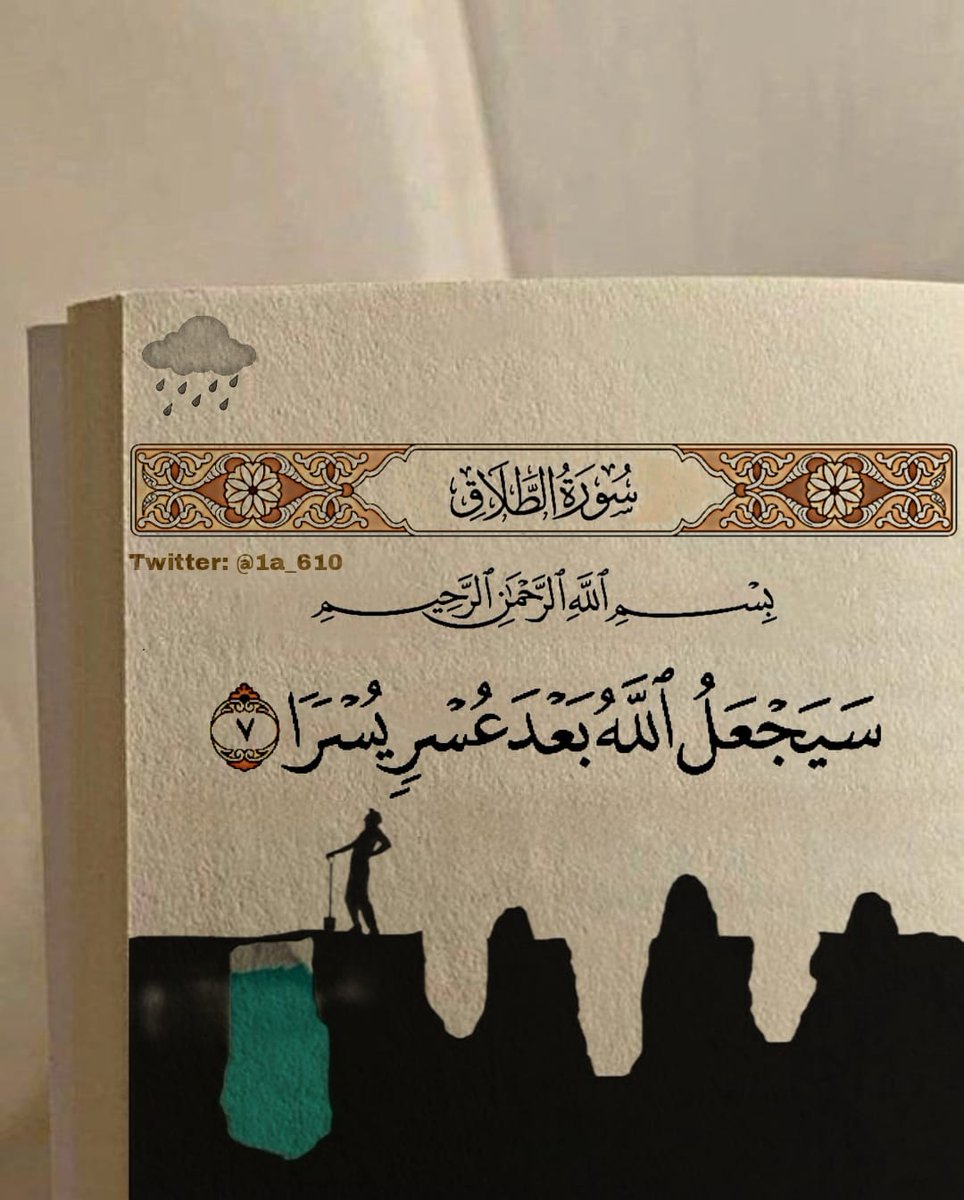 سُورَةُ الطَّلَاقِ
Twitter: @1a_610
بِسْمِ ٱللَّهِ ٱلرَّحْمَٰنِ ٱلرَّحِيمِ
سَيَجْعَلُ ٱللَّهُ بَعْدَ عُسْرٍ يُسْرًا ٧